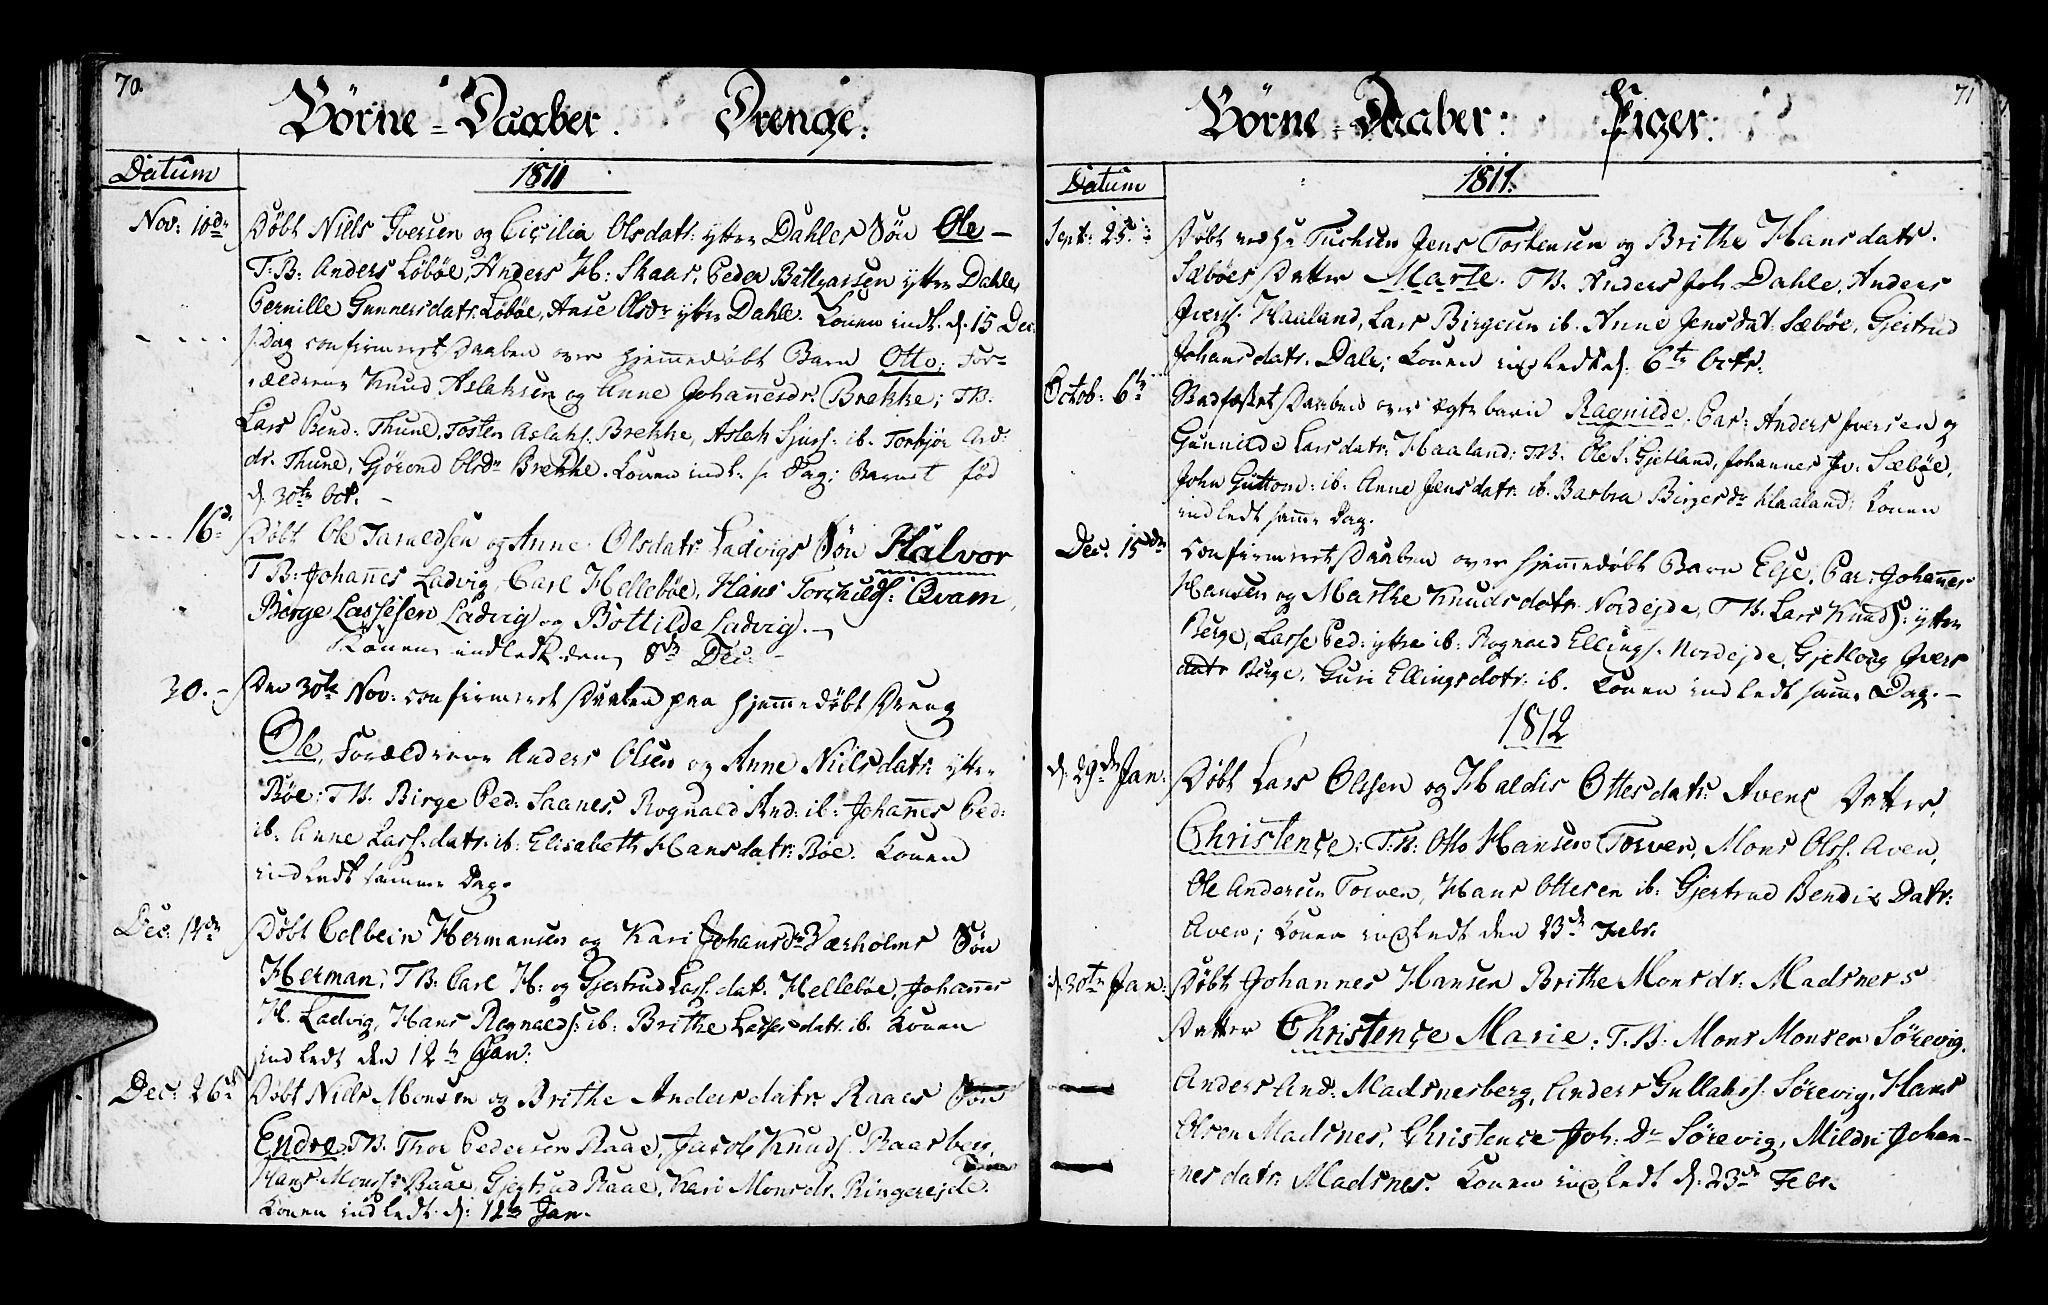 70.
Börne-Daaber. Drenge.
Datum 1811
Nov: 10de Døbt Niels Iversen og Cicilia Olsdatr: ytter Dahles Søn Ole -
T:B: Anders Løbøe, Anders H: Skaar, Peder Battzarsen ytter Dahle,
Pernille Gunnersdatr: Løbøe, Anse Olsdr ytter Dahle. Konen indl. d: 15 Dec.
s: Dag confirmeret Daaben over hjemmedøbt Barn Otto; For-
ældrene Knud Aslaksen og Anne Johannesdr: Brekke; TB:
Lars Bend: Thune, Tosten Aslaks. Brekke, Aslak Sjurs: ib. Torbjør And:
dr. Thune, Gjørond Olsdr Brekke. Konen indl. s: Dag; Barnet fød
d. 30te Oct. -
16de Døbt Ole Jarnedsen og Anne Olsdatr: Ladvigs Søn Halvor
TB: Johannes Ladvig, Carl Hellebøe, Hans Torchilds: Qvam,
Børge Lassesen Ladvig og Bottilde Ladvig. -
Konen indledt den 8de Dec: -
30. - Den 30te Nov: confirmeret Daaben paa hjemmedøbt Dreng
Ole, Forældrene Anders Olsen og Anne Nielsdatr: ytter
Bøe; TB. Birge Ped: Saanes, Rognald And: ib: Johannes Ped:
ib: Anne Lass.datr: ib: Elisabeth Hansdatr: Bøe. Konen
indledt samme Dag.
Dec. 14de Døbt Colbein Hermansen og Kari Johansdr Værholms Søn
Herman; TB: Carl H: og Gjertrud Lass.dat. Hellebøe, Johannes
H. Ladvig, Hans Rognalds: ib: Brithe Lassesdatr: ib. Konen
indledt den 12te Jan:
Dec: 26de Døbt Niels Monsen og Brithe Andersdatr: Raaes Søn
Endre TB: Thoe Pedersen Raae, Jacob Knuds. Raasberg,
Hans Monss: Raae, Gjertrud Raae, Kari Monsdr. Ringerejde.
Konen indledt d: 12te Jan.
71
Börne-Daaber: Piger:
Datum 1811.
Sept: 25: Døbt ved Hr Tuchsen Jens Tostensen og Brithe Hansdatr.
Sæbøes Datter Marte. TB. Anders Joh Dahle, Anders
Ivers. Haaland, Lars Birgesen ib. Anne Jensdat: Sæbøe, Gjertrud
Johansdatr. Dale; Konen indledt d: 6te Octr.
Octob: 6te Stadfæstet Daaben over ægte barn Ragnilde. Par: Anders Iversen og
Gunnilde Larsdatr: Haaland; TB. Ole S: Gjetland, Johannes Iv: Sæbøe,
John Guttorm: ib: Anne Jensdatr. ib. Barbra Birgesdr Haaland; Konen
indledt samme Dag.
Dec. 15de confirmeret Daaben over hjemmedøbt Barn Else. Par: Johannes
Hansen og Marthe Knudsdatr Nordejde, TB. Lars Knuds: ytter
Berge, Lasse Ped: yttre ib: Rognald Ellings. Nordejde, Gjetloug Ivers
datr Berge, Guri Ellingsdatr: ib. Konen indledt samme Dag. -
1812
d: 29de Jan: Døbt Lars Olssen og Haldis Ottesdatr: Avens Datter,
Christence; T:B: Otto Hansen Torven, Mons Olss. Aven,
Ole Andersen Torven, Hans Ottesen ib: Gjertrud Bendix Datr:
Aven; Konen indledt den 23de Febr.
d: 30te Jan: Døbt Johannes Hansen Brithe Monsdr: Madsnes
Datter Christence Marie; T.B: Mons Monsen Sørevig,
Anders And: Madsnesberg, Anders Gullakss: Sørevig, Hans
Olson Madsnes, Christence Joh: dr Sørevig, Mildri Johan-
nesdatr: Madsnes. Konen indledt d: 23de Febr.